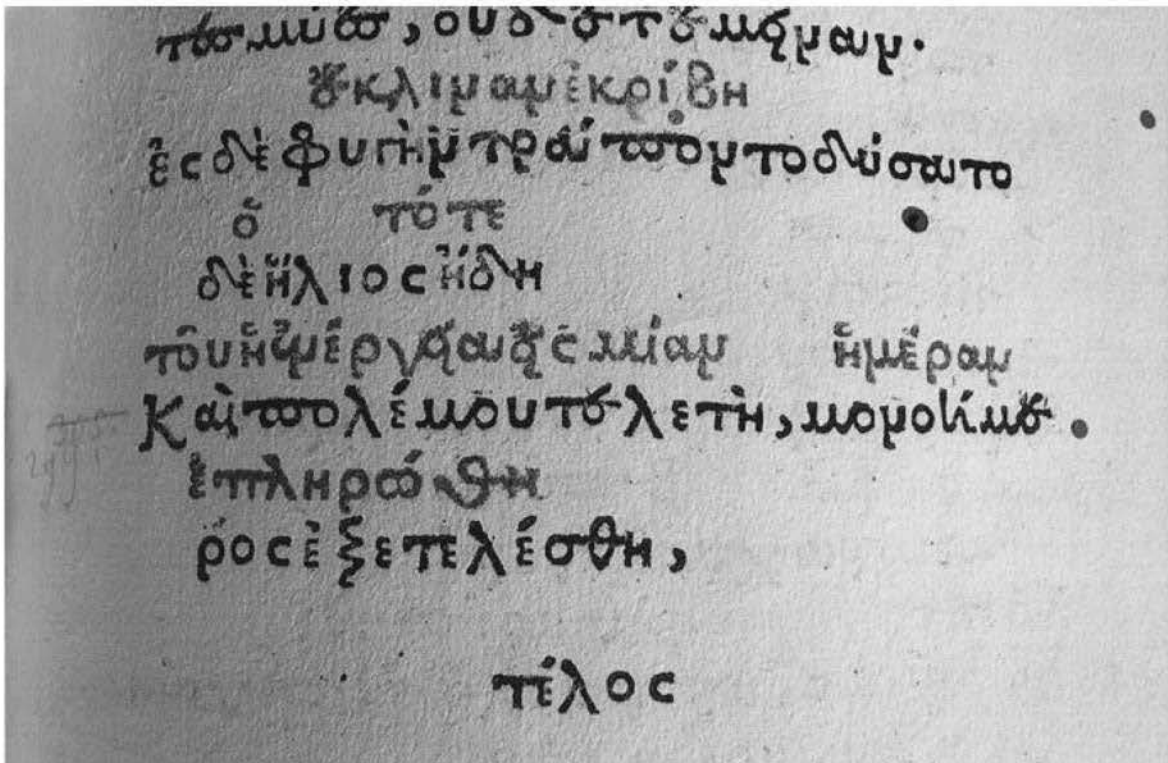 τες μύες, ουδ ετ έμειναν.
ἔκλιναν ἐκρίβη
ἐς δὲ φυγὴν τράποντο δύσατο
ὁ τότε
δὲ ἥλιος ἤδη
τοῦ ἡ ἐνέργεια εἰς μίαν ἡμέραν
Καὶ πολέμου τελετὴ, μονοήμε.
ἐπληρώθη
ρος ἐξετελέσθη,
τέλος